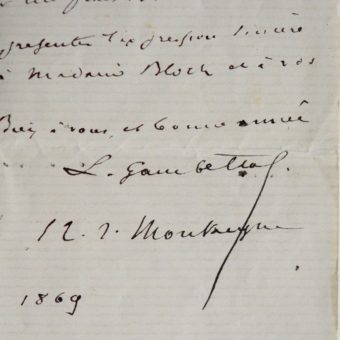 présenter l'expression sincère
à Madame Bloch et à vos
Bien à vous, et bonne année
L. Gambetta.
12. r. Montaigne
1869